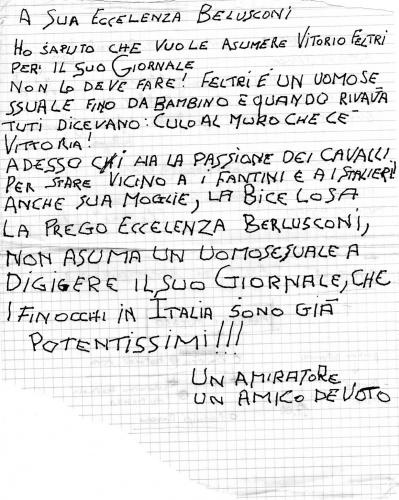 A SUA ECCELENZA BELUSCONI
HO SAPUTO CHE VUOLE ASUMERE VITORIO FELTRI
PER' IL SUO GIORNALE
NON LO DEVE FARE! FELTRI É UN UOMOSE
SSUALE FINO DA BAMBINO E QUANDO RIVAVA
TUTI DICEVANO: CULO AL MURO CHE CE'
VITTORIA!
ADESSO CHI HA LA PASSIONE DEI CAVALLI,
PER STARE VICINO A I FANTINI E A I STALIERI
ANCHE SUA MOGLIE, LA BICE LO SA
LA PREGO ECCELENZA BERLUSCONI,
NON ASUMA UN UOMOSESUALE A
DIGIGERE IL SUO GIORNALE, CHE
I FINOCCHI IN ITALIA SONO GIÀ
POTENTISSIMI!!!
UN AMIRATORE
UN AMICO DEVOTO